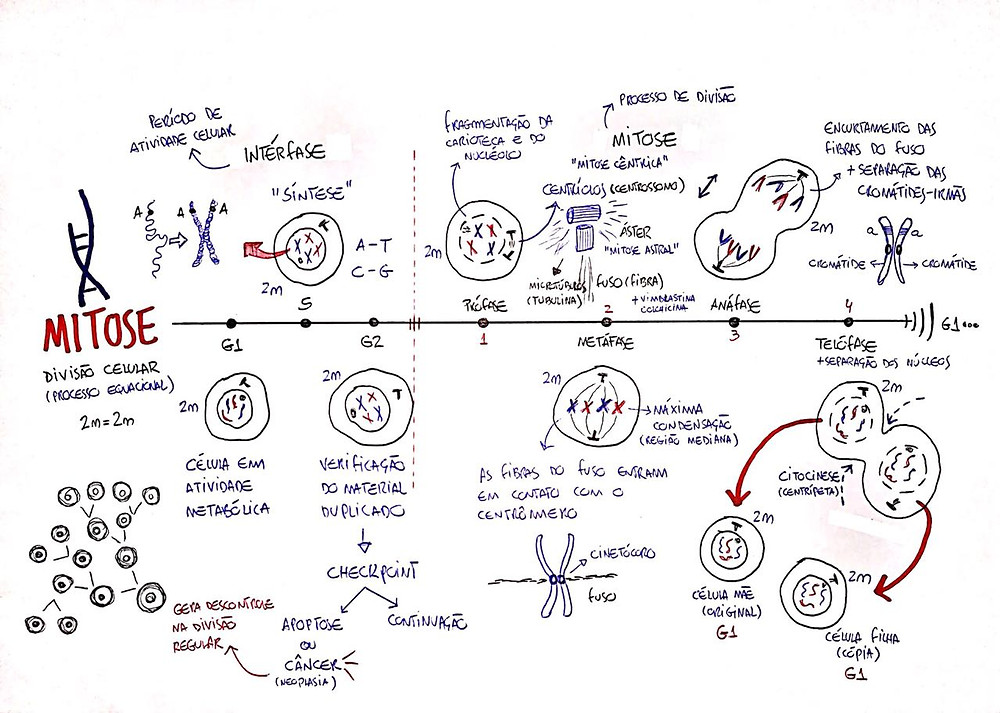 PERÍODO DE
ATIVIDADE CELULAR
INTÉRFASE
"SÍNTESE"
A
A
A
A-T
C-G
2m
S
MITOSE
DIVISÃO CELULAR
(PROCESSO EQUACIONAL)
2m=2m
G1
G2
2m
CÉLULA EM
ATIVIDADE
METABÓLICA
2m
VERIFICAÇÃO
DO MATERIAL
DUPLICADO
CHECKPOINT
APOPTOSE
OU
CÂNCER
(NEOPLASIA)
CONTINUAÇÃO
GERA DESCONTROLE
NA DIVISÃO
REGULAR
PROCESSO DE DIVISÃO
MITOSE
"MITOSE CÊNTRICA"
FRAGMENTAÇÃO DA
CARIOTECA E DO
NUCLÉOLO
CENTRÍOLOS (CENTROSSOMO)
2m
ÁSTER
"MITOSE ASTRAL"
MICROTÚBULOS
(TUBULINA)
FUSO (FIBRA)
+ VIMBRASTINA
COLCHICINA
PRÓFASE
1
2
METÁFASE
2m
MÁXIMA
CONDENSAÇÃO
(REGIÃO MEDIANA)
AS FIBRAS DO FUSO ENTRAM
EM CONTATO COM O
CENTRÔMERO
CINETÓCORO
FUSO
ENCURTAMENTO DAS
FIBRAS DO FUSO
+ SEPARAÇÃO DAS
CROMÁTIDES-IRMÃS
2m
a
a
CROMÁTIDE
CROMÁTIDE
ANÁFASE
3
4
TELÓFASE
+SEPARAÇÃO DOS NÚCLEOS
G1...
2m
CITOCINESE
(CENTRÍPETA)
2m
CÉLULA MÃE
(ORIGINAL)
G1
2m
CÉLULA FILHA
(CÓPIA)
G1